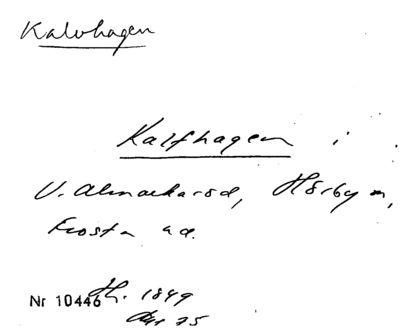 Kalvhagen
Kalfhagen i
V. Almaekaröd, Hörby sn,
Frosta hd.
Nr 10446 1849